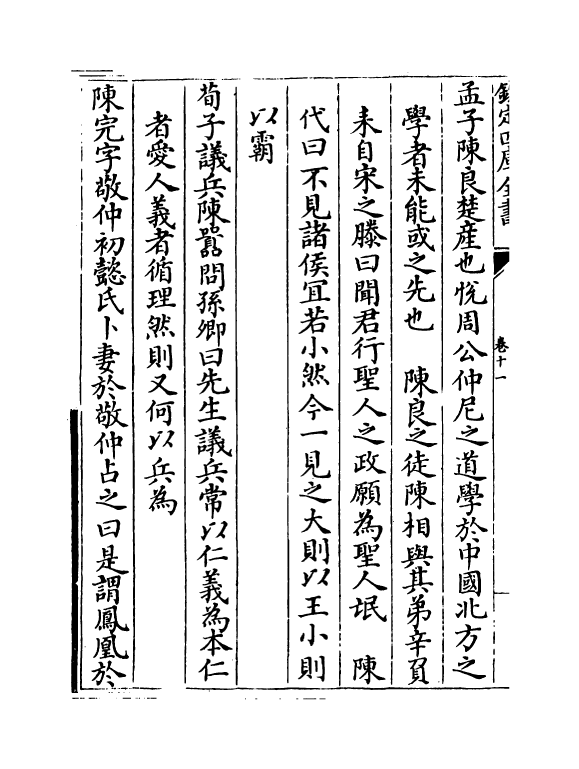 欽定四庫全書
卷十一
孟子陳良楚産也悅周公仲尼之道學於中國北方之
學者未能或之先也　陳良之徒陳相與其弟辛負
耒自宋之滕曰聞君行聖人之政願為聖人氓　陳
代曰不見諸侯冝若小然今一見之大則以王小則
以霸
荀子議兵陳嚻問孫卿曰先生議兵常以仁義為本仁
者愛人義者循理然則又何以兵為
陳完字敬仲初懿氏卜妻於敬仲占之曰是謂鳳凰於